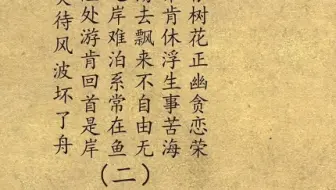 树花正幽贪恋荣
肯休浮生事苦海
去飘来不自由无
岸难泊系常在鱼
处游肯回首是岸
待风波坏了舟
(二)